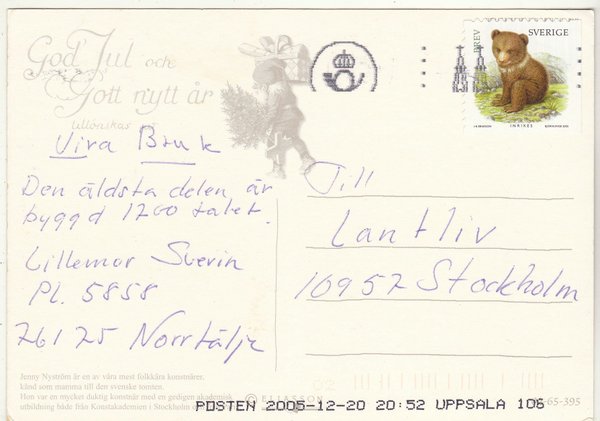 God Jul och
Gott nytt år
tillönskas
Vira Bruk
Den äldsta delen är
byggd 1200 talet.
Lillemor Sverin
Pl. 5858
76175 Norrtälje
SVERIGE
BREV
INRIKES
Till
Lantliv
10957 Stockholm
Jenny Nyström är en av våra mest folkkära konstnärer,
känd som mamma till den svenske tomten.
Hon var en mycket duktig konstnär med en gedigen akademisk
utbildning både från Konstakademien i Stockholm
© ELIASSON
65-395
POSTEN 2005-12-20 20:52 UPPSALA 106